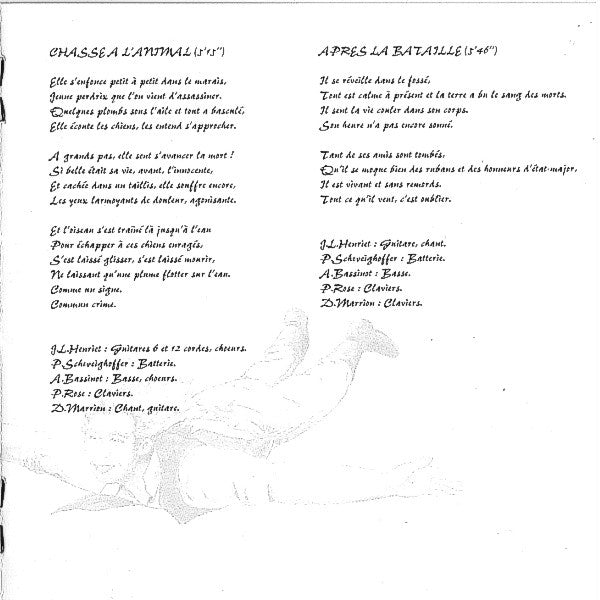 CHASSE A L'ANIMAL (5'15")
Elle s'enfonce petit à petit dans le marais,
Jeune perdrix que l'on vient d'assassiner.
Quelques plombs sous l'aile et tout a basculé,
Elle écoute les chiens, les entend s'approcher.
A grands pas, elle sent s'avancer la mort !
Si belle était sa vie, avant, l'innocente,
Et cachée dans un taillis, elle souffre encore,
Les yeux larmoyants de douleur, agonisante.
Et l'oiseau s'est traîné là jusqu'à l'eau
Pour échapper à ces chiens enragés,
S'est laissé glisser, s'est laissé mourir,
Ne laissant qu'une plume flotter sur l'eau.
Comme un signe.
Commun crime.
J.L.Henriet : Guitares 6 et 12 cordes, choeurs.
P.Scheveighoffer : Batterie.
A.Bassinot : Basse, choeurs.
P.Rose : Claviers.
D.Marrion : Chant, guitare.
APRES LA BATAILLE (5'46")
Il se réveille dans le fossé,
Tout est calme à présent et la terre a bu le sang des morts.
Il sent la vie couler dans son corps.
Son heure n'a pas encore sonné.
Tant de ses amis sont tombés,
Qu'il se moque bien des rubans et des honneurs d'état-major,
Il est vivant et sans remords.
Tout ce qu'il veut, c'est oublier.
J.L.Henriet : Guitare, chant.
P.Scheveighoffer : Batterie.
A.Bassinot : Basse.
P.Rose : Claviers.
D.Marrion : Claviers.